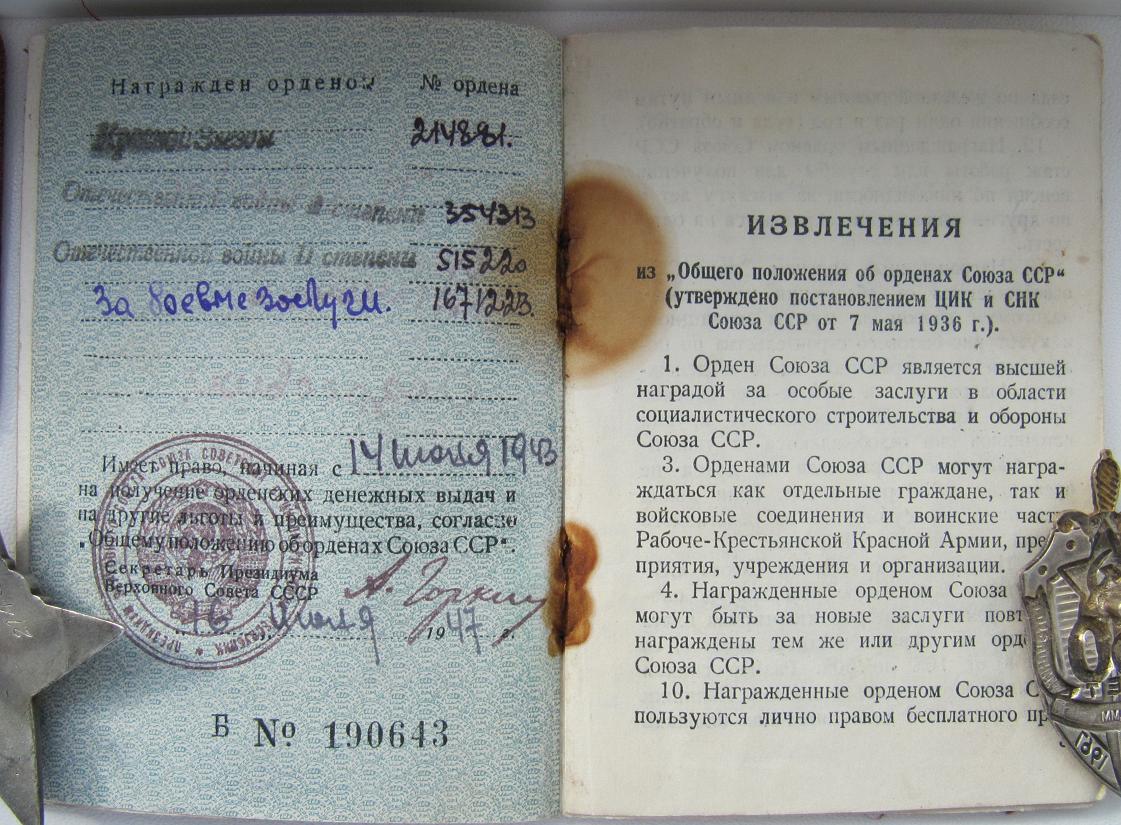 Награжден орденом № ордена
Красной Звезды 214881.
Отечественной войны II степени 354313
Отечественной войны II степени 515220
За боевые заслуги. 1671223.
Имеет право, начиная с 14 июля 1943
на получение орденских денежных выдач и
на другие льготы и преимущества, согласно
„Общему положению об орденах Союза ССР“.
Секретарь Президиума
Верховного Совета СССР А. Горкин
16 Июля 1947 г.
Б № 190643
ИЗВЛЕЧЕНИЯ
из „Общего положения об орденах Союза ССР“
(утверждено постановлением ЦИК и СНК
Союза ССР от 7 мая 1936 г.).
1. Орден Союза ССР является высшей
наградой за особые заслуги в области
социалистического строительства и обороны
Союза ССР.
3. Орденами Союза ССР могут награ-
ждаться как отдельные граждане, так и
войсковые соединения и воинские част
Рабоче-Крестьянской Красной Армии, пре
приятия, учреждения и организации.
4. Награжденные орденом Союза
могут быть за новые заслуги повт
награждены тем же или другим орд
Союза ССР.
10. Награжденные орденом Союза С
пользуются лично правом бесплатного пр